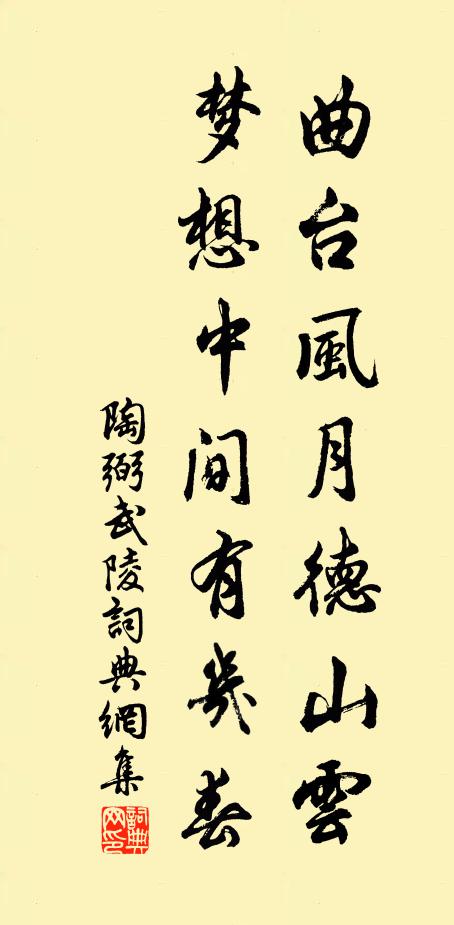 曲台風月德山雲
梦想中间有幾春
陶弼武陵詞典網集
詞典网印